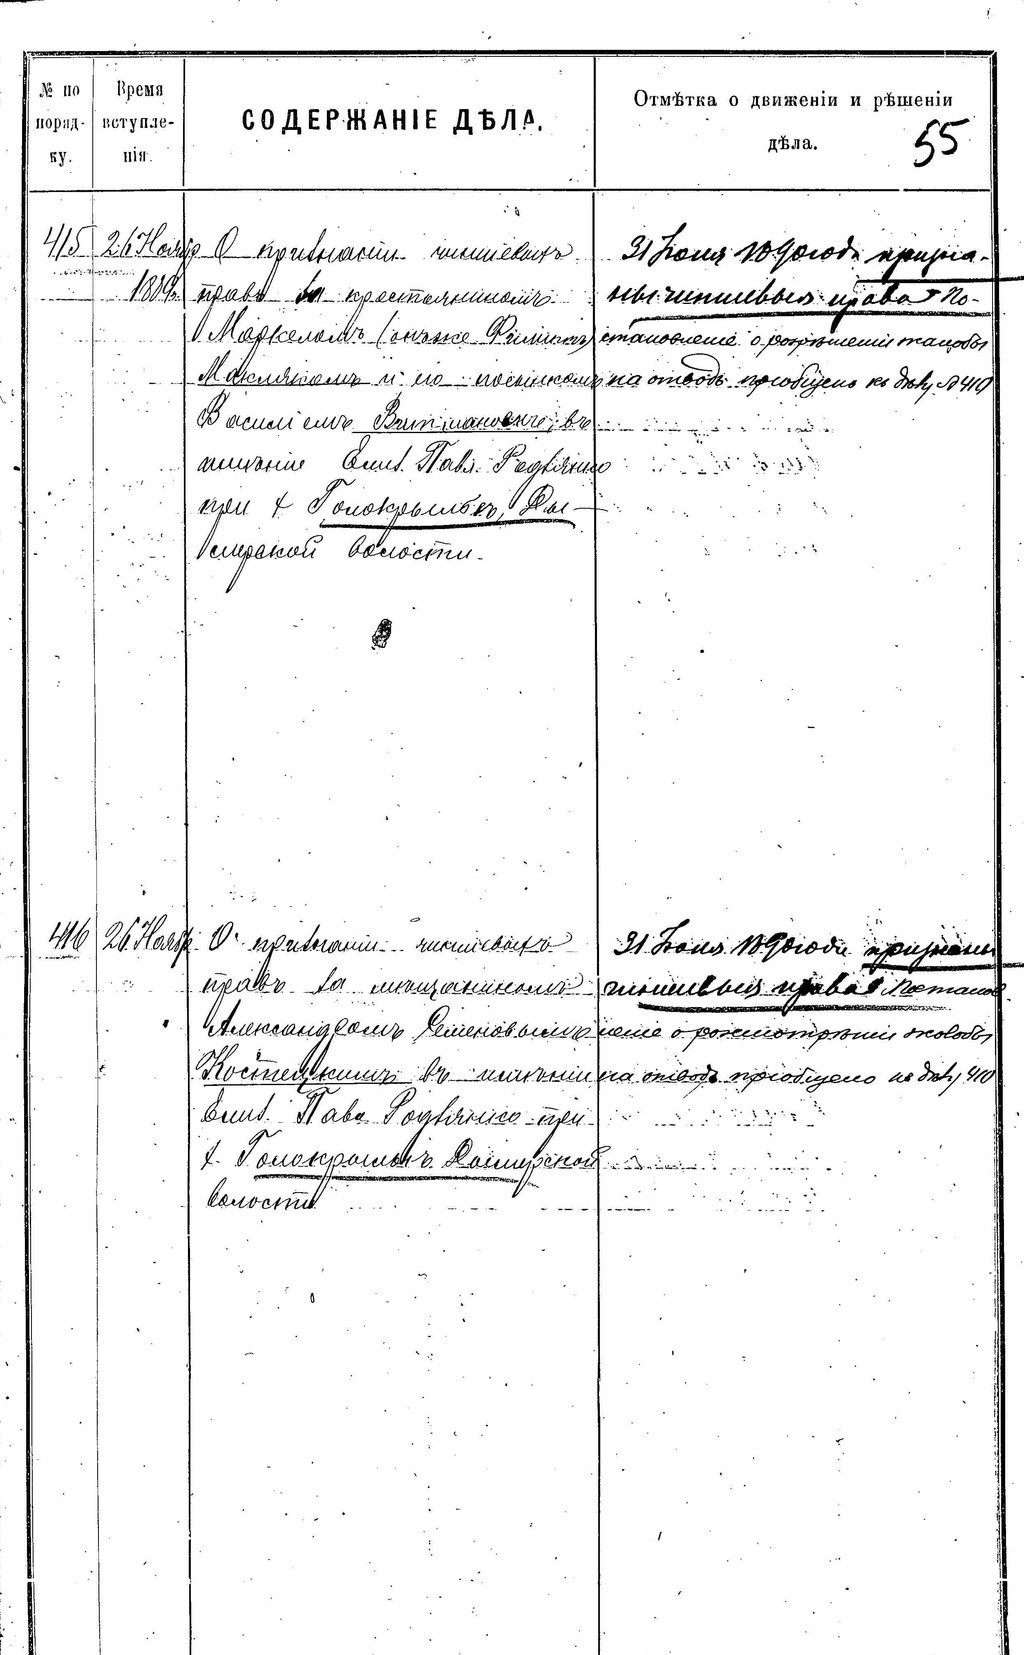 № по порядку.
Время вступленія.
СОДЕРЖАНІЕ ДѢЛА.
Отмѣтка о движеніи и рѣшеніи дѣла.
55
415
26 Ноябр
1889г.
О признаніи чиншевыхъ
правъ за крестьяниномъ
Маркеломъ (онъ же Филиппъ)
и его
Василіемъ въ
имѣніе Елис. Павл. Родзянко
при д. Голокрылокъ, Ды-
мерской волости.
31 Іюля 1890 года призна-
ны чиншевыя права По-
становленіе о разрѣшеніи жалобы
на отводъ пріобщено къ дѣлу № 410
416
26 Ноябр
О признаніи чиншевыхъ
правъ за мѣщаниномъ
Александромъ Семеновымъ
Костецкимъ въ имѣніи
Елис. Павл. Родзянко при
д. Голокрылокъ Дымерской
волости
31 Іюля 1890 года признаны
чиншевыя права Постанов
леніе о разсмотрѣніи жалобы
на отводъ пріобщено къ дѣлу 410